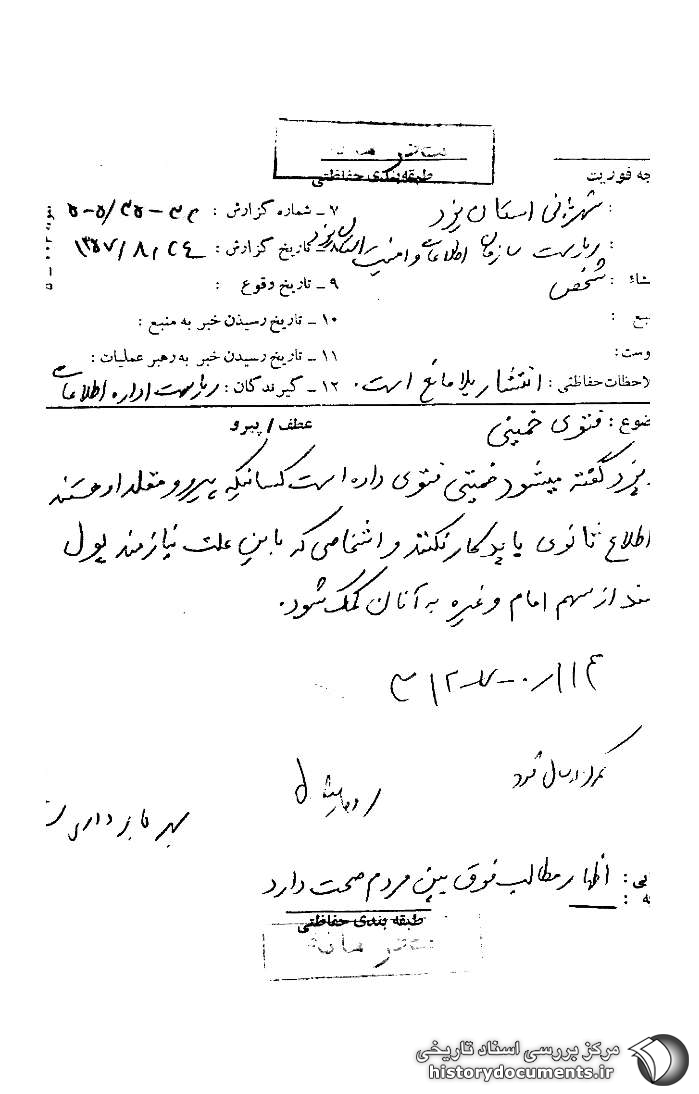 طبقه‌بندی حفاظتی
جه فوریت
: شهربانی استان یزد
۷ـ شماره گزارش :
: ریاست سازمان اطلاعات و امنیت استان یزد
تاریخ گزارش : ۱۳۵۷/۸/۲۴
شاء : شخص
۹ـ تاریخ وقوع :
بع :
۱۰ـ تاریخ رسیدن خبر به منبع :
وست :
۱۱ـ تاریخ رسیدن خبر به رهبر عملیات :
لاحظات حفاظتی : انتشار بلامانع است.
۱۲ـ گیرندگان : ریاست اداره اطلاعات
ضوع : فتوی خمینی
عطف / پیرو
یزد گفته میشود خمینی فتوی داده است کسانیکه پیرو و مقلد او هستند
اطلاع ثانوی باید کار نکنند و اشخاصی که باین علت نیازمند پول
ند از سهم امام و غیره به آنان کمک شود.
ارسال شود
بهره‌برداری
یی : اظهار مطالب فوق بین مردم صحت دارد
ه :
طبقه بندی حفاظتی
مرکز بررسی اسناد تاریخی
historydocuments.ir